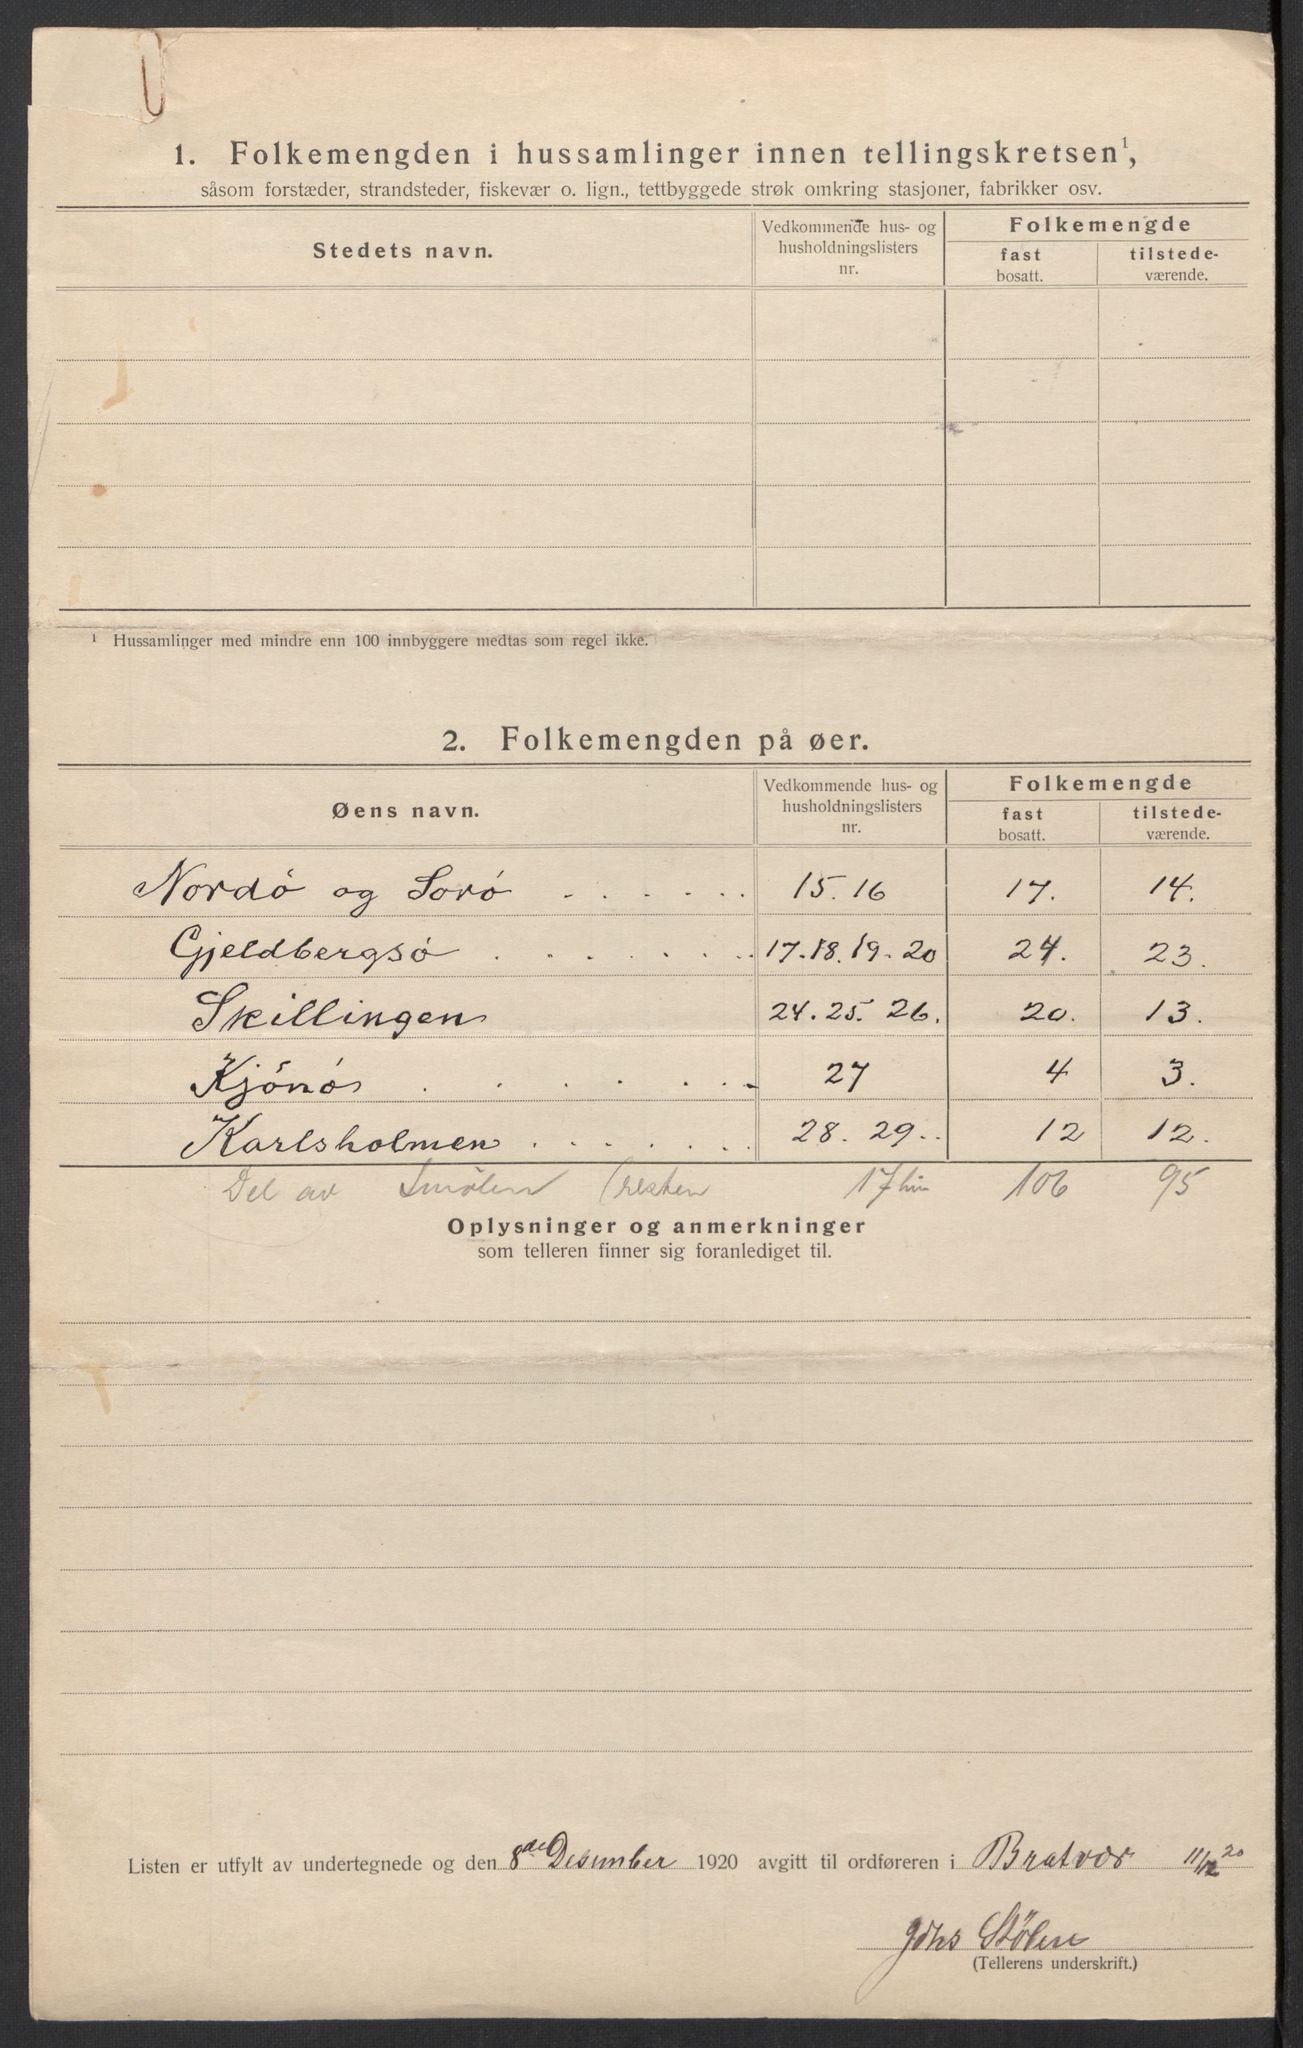 1. Folkemengden i hussamlinger innen tellingskretsen¹,
såsom forstæder, strandsteder, fiskevær o. lign., tettbyggede strøk omkring stasjoner, fabrikker osv.
Stedets navn.
Vedkommende hus- og
husholdningslisters
nr.
Folkemengde
fast
bosatt.
tilstede-
værende.
¹ Hussamlinger med mindre enn 100 innbyggere medtas som regel ikke.
2. Folkemengden på øer.
Øens navn.
Vedkommende hus- og
husholdningslisters
nr.
Folkemengde
fast
bosatt.
tilstede-
værende.
Nordö og Sorö . . . . . . 15. 16 17. 14.
Gjeldbergsö . . . . . . . 17. 18. 19. 20 24. 23.
Skillingen 24. 25. 26. 20. 13.
Kjönö . . . . . . . 27 4 3.
Karlsholmen . . . . . . . 28. 29. 12 12.
Del av Smølen (resten 17 106 95
Oplysninger og anmerkninger
som telleren finner sig foranlediget til.
Listen er utfylt av undertegnede og den 8de Desember 1920 avgitt til ordføreren i Bratvær 11/12 20
Johs Stölen
(Tellerens underskrift.)